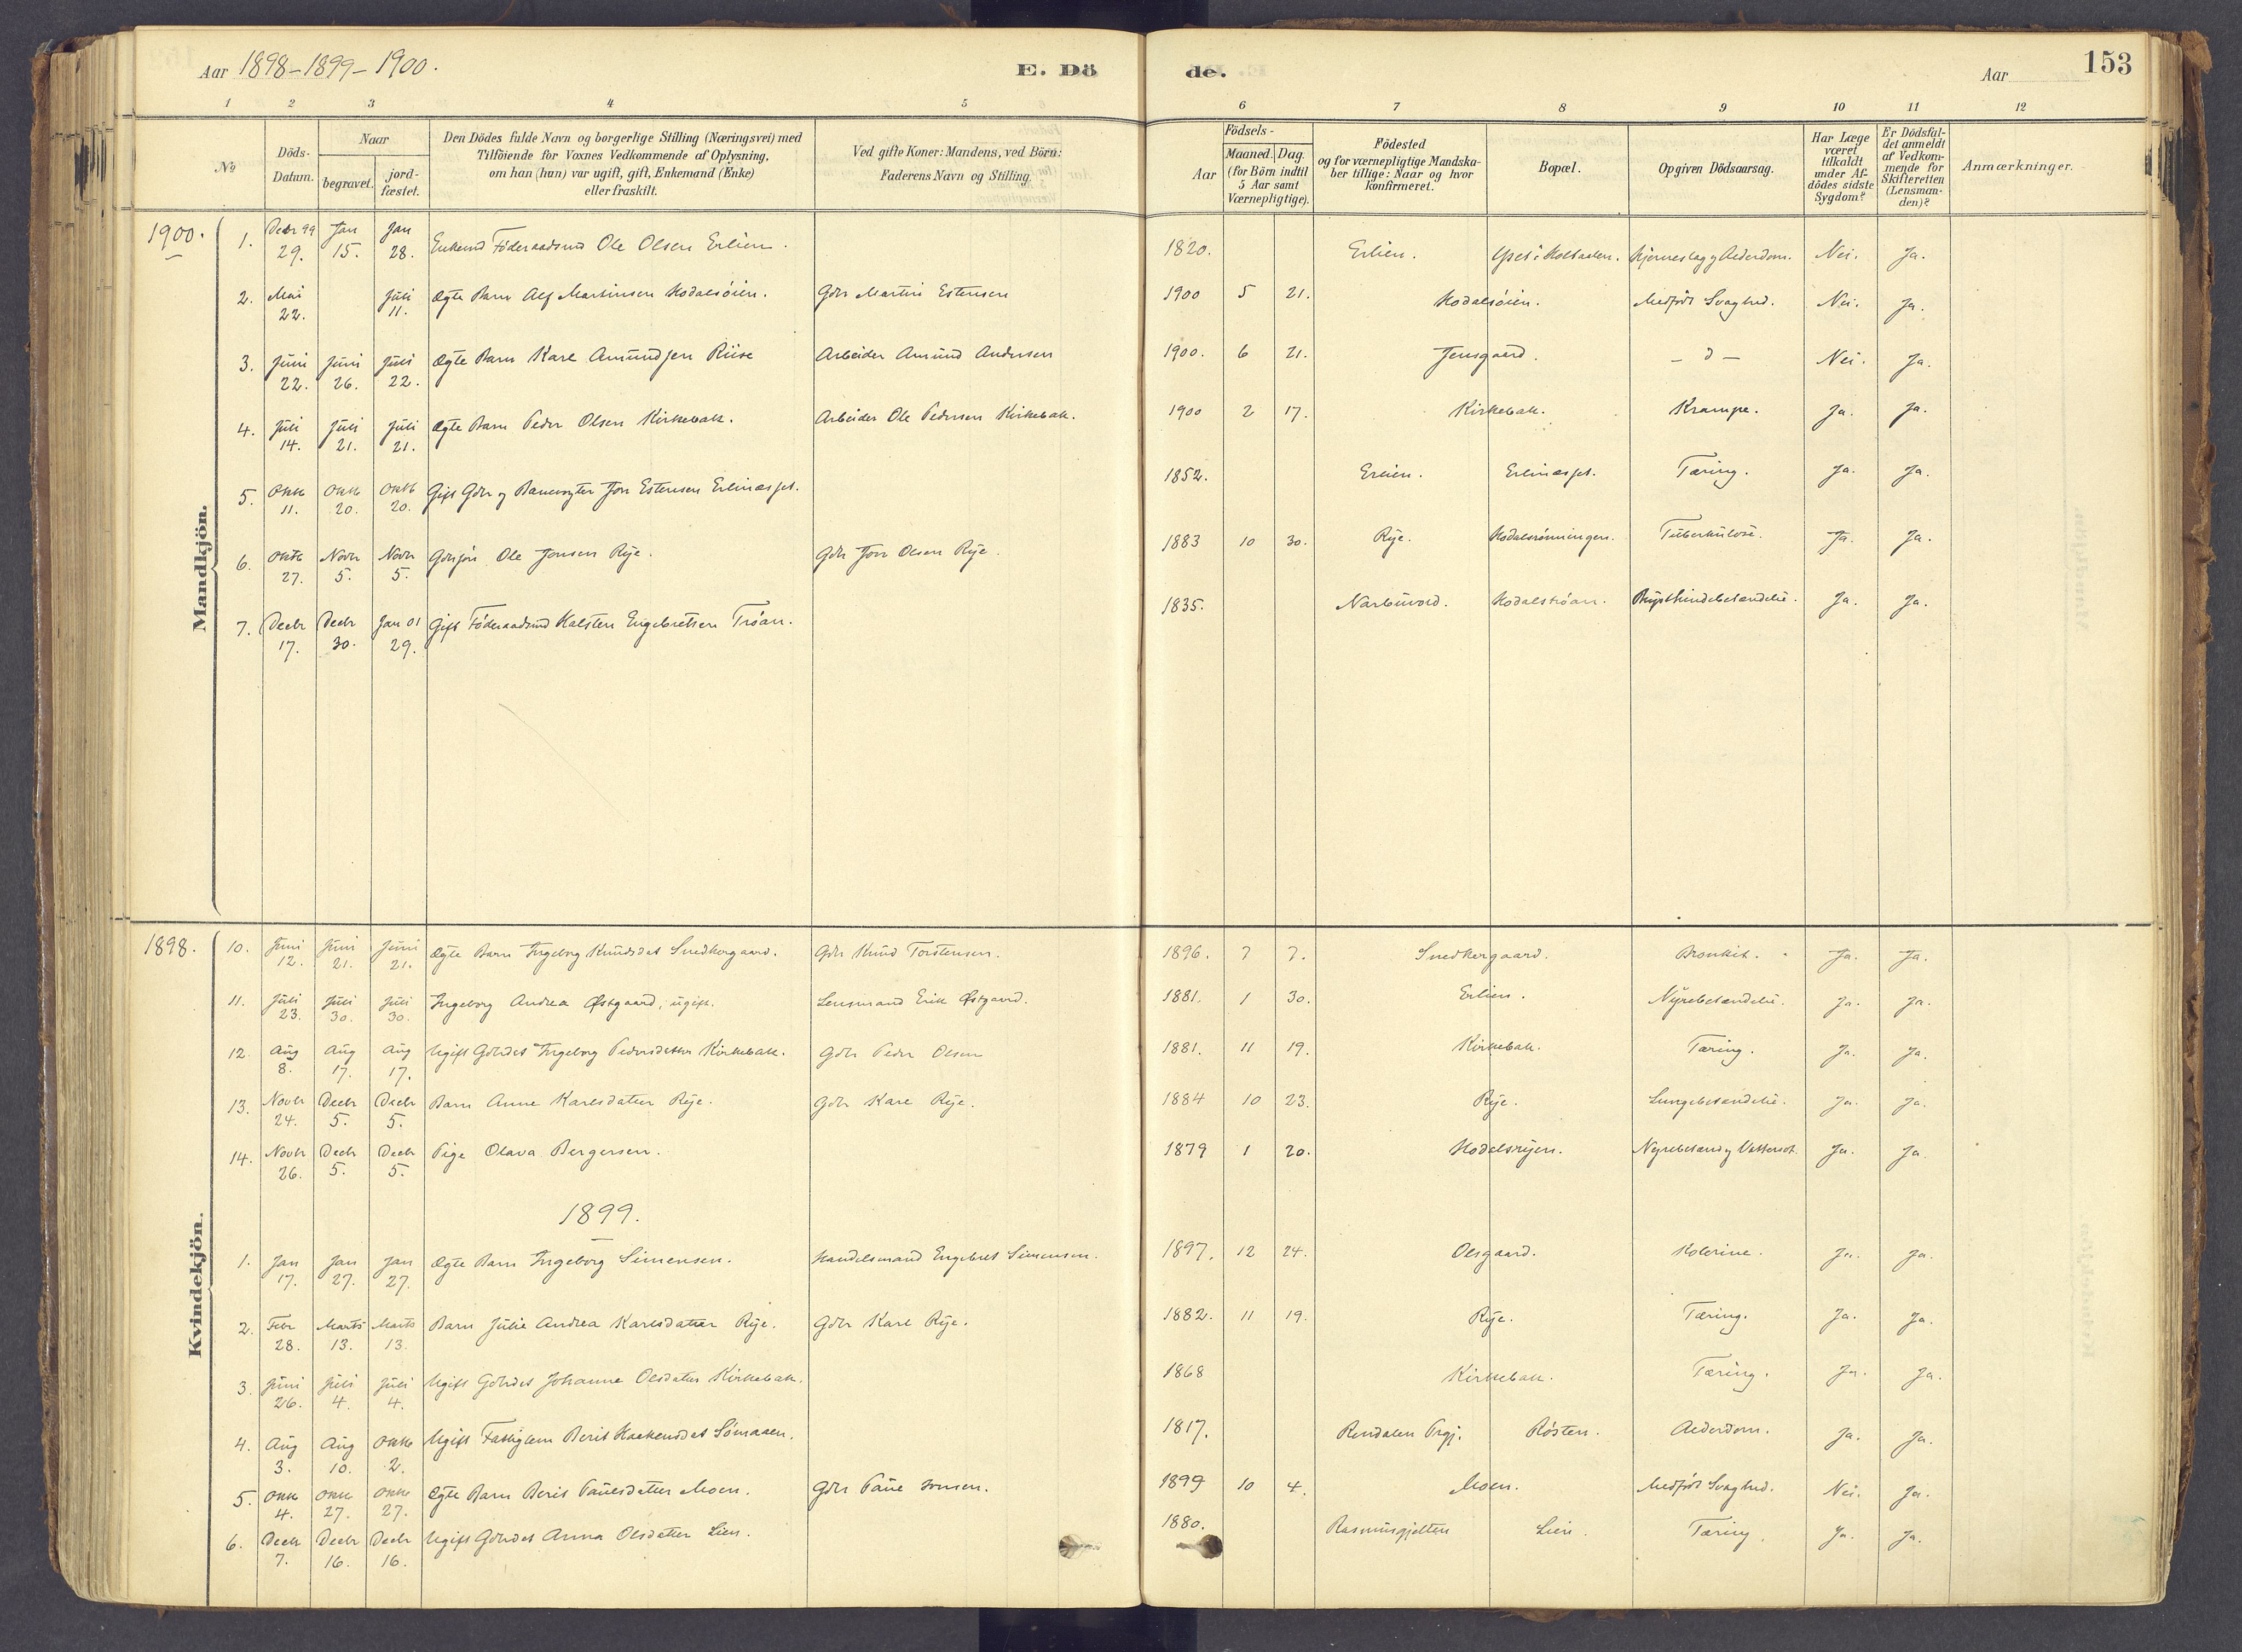 Aar 1898-1899-1900.
E. Dö
de.
Aar
153
1 2 3 4 5 6 7 8 9 10 11 12
No
Döds-
Datum.
Naar
begravet.
jord-
fæstet.
Den Dödes fulde Navn og borgerlige Stilling (Næringsvei) med
Tilföiende for Voxnes Vedkommende af Oplysning,
om han (hun) var ugift, gift, Enkemand (Enke)
eller fraskilt.
Ved gifte Koner: Mandens, ved Börn:
Faderens Navn og Stilling.
Aar
Födsels-
Maaned. Dag.
(for Börn indtil
5 Aar samt
Værnepligtige).
Födested
og for værnepligtige Mandska-
ber tillige: Naar og hvor
konfirmeret.
Bopæl.
Opgiven Dödsaarsag.
Har Læge
været
tilkaldt
under Af-
dödes sidste
Sygdom?
Er Dödsfal-
det anmeldt
af Vedkom-
mende for
Skifteretten
(Lensman-
den)?
Anmærkninger.
Mandkjön.
1900.
1. Decbr 99 29. Jan 15. Jan 28. Enkemd Föderaadsmd Ole Olsen Erlien. 1820. Erlien. Hjerneslag og Alderdom. Nei. Ja.
2. Mai 22. Juli 11. Ægte Barn Alf Martinsen Hodalsöien. Gdbr Martin Estensen 1900 5 21. Hodalsöien. Medfödt Svaghed. Nei. Ja.
3. Juni 22. Juni 26. Juli 22. Ægte Barn Karl Amundsen Riise Arbeider Amund Andersen 1900. 6 21. Jensgaard. - d - Nei. Ja.
4. Juli 14. Juli 21. Juli 21. Ægte Barn Peder Olsen Kirkebak. Arbeider Ole Pedersen Kirkebak. 1900 2 17. Kirkebak. Krampe. Ja. Ja.
5. Oktb 11. Oktb 20. Oktb 20. Gift Gdbr og Banevogter Jon Estensen 1852. Erlien. Tæring. Ja. Ja.
6. Oktb 27. Novbr 5. Novbr 5. Ole Jonsen Rye. Gdbr Jon Olsen Rye. 1883 10 30. Rye. Hodalsrønningen. Tuberkulose. Ja. Ja.
7. Decbr 17. Decbr 30. Jan 01 29. Gift Föderaadsmd Halsten Engebretsen Tröan. 1835. Narbuvold. Hodalströan. Brysthindebetændelse. Ja. Ja.
Kvindekjön.
1898.
10. Juni 12. Juni 21. Juni 21. Ægte Barn Ingeborg Knudsdat Snedkergaard. Gdbr Knud Torstensen. 1896. 7 7. Snedkergaard. Bronkit. Ja. Ja.
11. Juli 23. Juli 30. Juli 30. Ingeborg Andrea Østgaard, ugift. Lensmand Erik Østgaard. 1881. 1 30. Erlien. Nyrebetændelse. Ja. Ja.
12. Aug 8. Aug 17. Aug 17. Ugift Gdbrdat Ingeborg Pedersdatter Kirkebak. Gdbr Peder Olsen 1881. 11 19. Kirkebak. Tæring. Ja. Ja.
13. Novbr 24. Decbr 5. Decbr 5. Barn Anne Karlsdatter Rye. Gdbr Karl Rye. 1884 10 23. Rye. Lungebetændelse. Ja. Ja.
14. Novbr 26. Decbr 5. Decbr 5. Pige Olava Bergersen. 1879 1 20. Nyrebetænd og Vattersot. Ja. Ja.
1899.
1. Jan 17. Jan 27. Jan 27. Ægte Barn Ingeborg Simensen. Handelsmand Engebret Simensen. 1897. 12 24. Olsgaard. Kolerine. Ja. Ja.
2. Febr 28. Marts 13. Marts 13. Barn Julie Andrea Karlsdatter Rye. Gdbr Karl Rye. 1882. 11 19. Rye. Tæring. Ja. Ja.
3. Juni 26. Juli 4. Juli 4. Ugift Gdbrdat Johanne Olsdatter Kirkebak. 1868 Kirkebak. Tæring. Ja. Ja.
4. Aug 3. Aug 10. Oktb 2. Ugift Fattiglem Berit Haakensdat Sömaaen. 1817. Rendalen Prgj. Røsten. Alderdom. Ja. Ja.
5. Oktb 4. Oktb 27. Oktb 27. Ægte Barn Berit Paulsdatter Moen. Gdbr Paul Jonsen. 1899 10 4. Moen. Medfödt Svaghed. Nei. Ja.
6. Decbr 7. Decbr 16. Decbr 16. Ugift Gdbrdat Anna Olsdatter Lien. 1880. Rasmusgjelten Lien. Tæring. Ja. Ja.